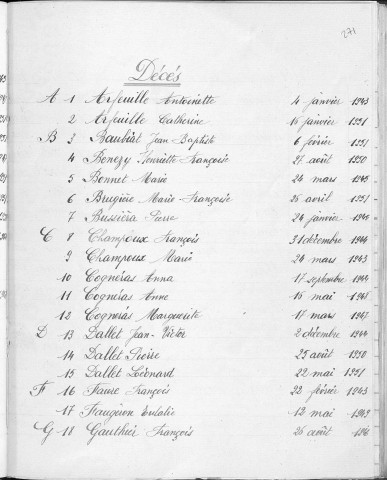 271
Décès
A 1 Arfeuille Antoinette 4 janvier 1943
2 Arfeuille Catherine 16 janvier 1951
B 3 Baubiat Jean-Baptiste 6 février 1951
4 Benezy Henriette Françoise 27 août 1950
5 Bonnet Marie 24 mars 1945
6 Brugière Marie-Françoise 26 avril 1951
7 Bussièra Pierre 24 janvier
C 8 Champoux François 31 décembre 1944
9 Champoux Marie 24 mars 1943
10 Cognéras Anna 17 septembre 1944
11 Cognéras Anne 16 mai
12 Cognéras Marguerite 17 mars 1947
D 13 Dallet Jean-Victor 2 décembre 1944
14 Dallet Pierre 25 août 1950
15 Dallet Léonard 22 mai 1951
F 16 Faure François 22 février 1943
17 Faugeron Eulalie 12 mai 1949
G 18 Gauthier François 26 août